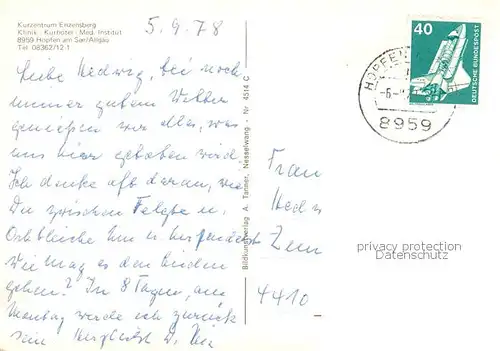 Kurzentrum Enzensberg
Klinik · Kurhotel · Med. Institut
8959 Hopfen am See/Allgäu
Tel. 08362/12-1
5.9.78
Liebe Hedwig, bei noch
immer gutem Wetter
genießen wir alles, was
uns hier geboten wird.
Ich denke oft daran, wie
Du zwischen Telgte u.
hin u. her
Wie mag es den beiden
gehen? In 8 Tagen, am
Montag werde ich zurück
sein Herzlichst D.
Bildkunstverlag A. Tanner, Nesselwang - Nr. 4314 C
40
DEUTSCHE BUNDESPOST
HOPFEN
8959
Frau
4410
privacy protection
Datenschutz